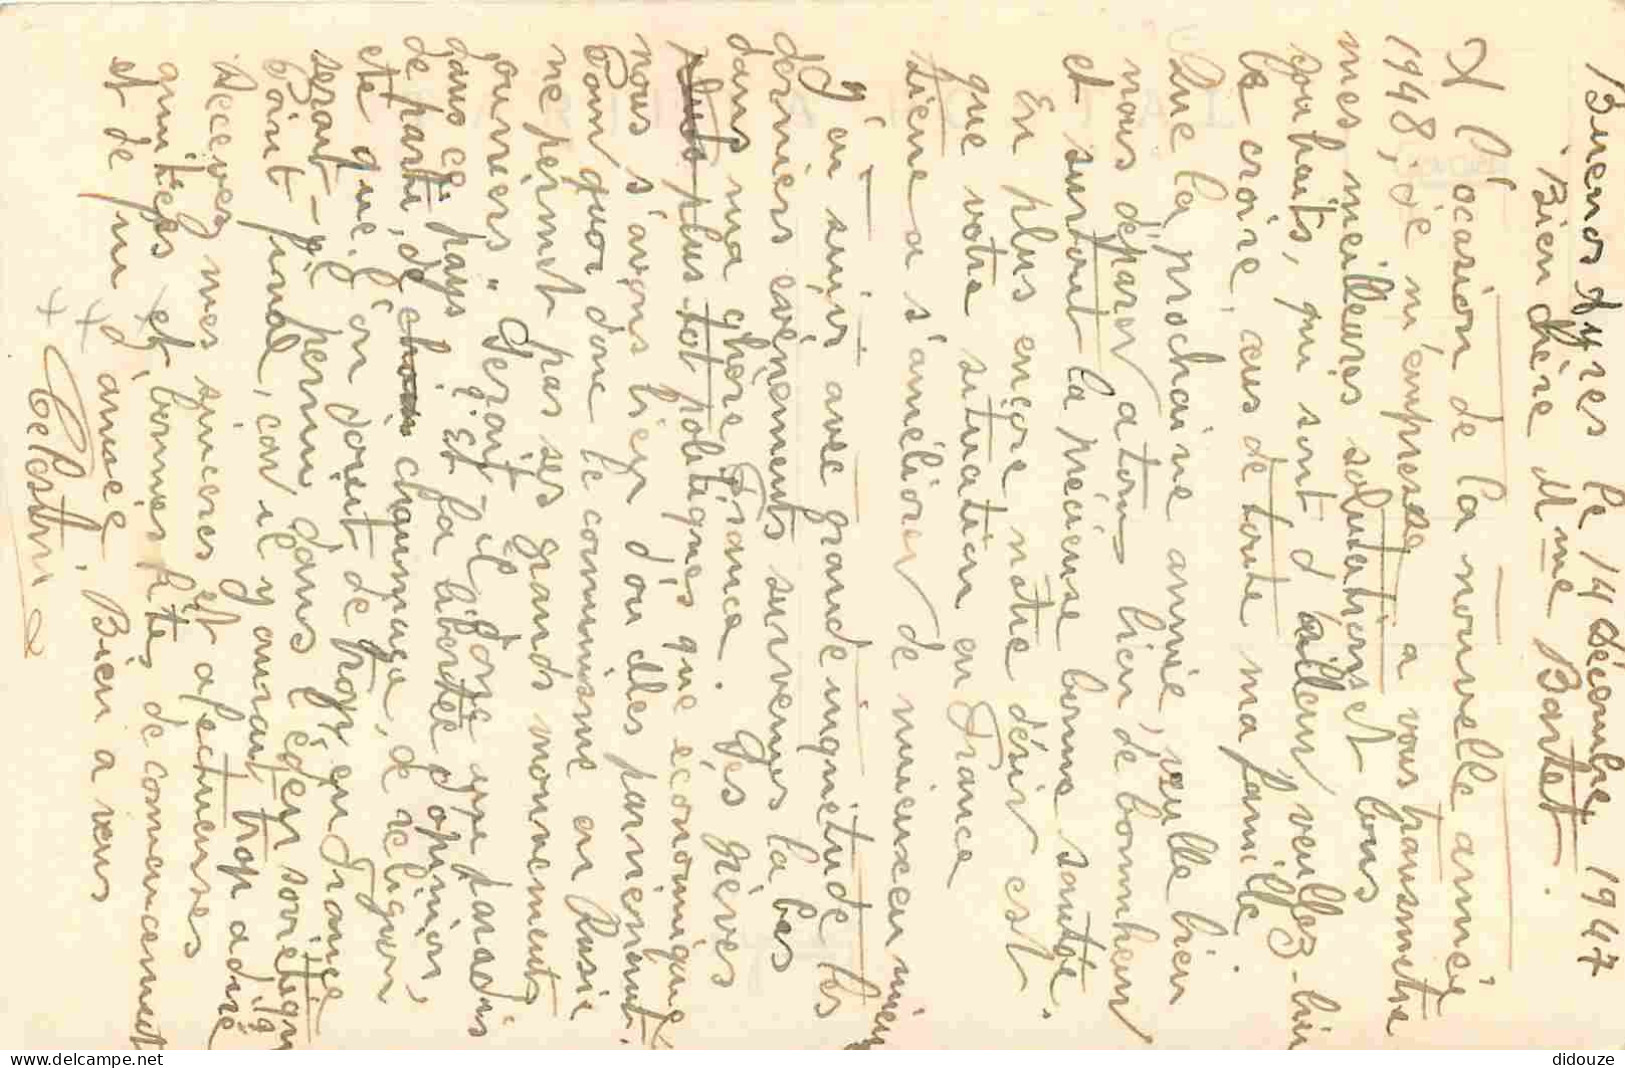 Buenos Ayres le 14 décembre, 1947
Bien chère Mme Bortet.
A l'ocasion de la nouvelle année
1948, je m'empresse a vous transmetre
mes meilleures salutations et bons
souhaits, qui sont d'ailleur veuillez-bien
le croire, ceus de toute ma famille.
Que la prochaine année, veulle bien
nous déparer a tous bien de bonheur
et surtout la précieuse bonne santée.
En plus encore notre désir est
que votre situation en France
tiene a s'améliorer de mieux en mieux
J'en suivi avec grande inquiétude les
derniers evénements survenus la bes
dans ma chère France. Ges grèves
plus plus tot politiques que economiques
nous s'avons bien d'ou elles parviennent.
Pourquoi donc le comunisme en Rusie
ne permet pas ses grands mouvements
ouvriers. Serait-il donc un paradis
dans ce pays q. et la libertée d'opinion,
de parti, de chaumage, de religion
etc que l'on doit de trop en France
serait-il permi dans l'éden soviétique
Point final, car il y aurait trop a dire
Recevez mes sinceres et afectueuses
amitiées et bonnes Fêtes de commencement
et de fin d'année, Bien a vous
Celestin
didouze